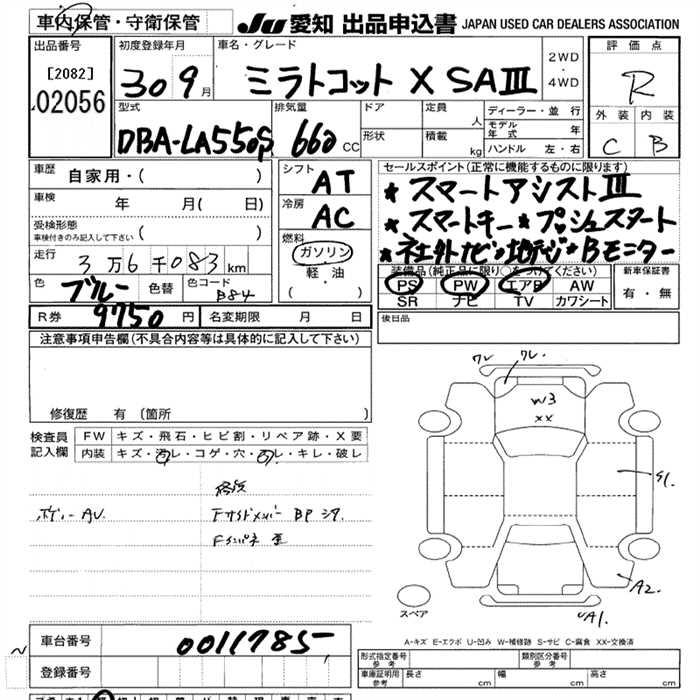 車内保管・守衛保管
JU 愛知 出品申込書 JAPAN USED CAR DEALERS ASSOCIATION
出品番号
[2082]
02056
初度登録年月
30 9月
車名・グレード
ミラトコット X SAⅢ
2WD
・
4WD
評価点
R
外装 内装
C B
型式
DBA-LA550S
排気量
660 CC
ドア
形状
定員 人
積載 kg
ディーラー・並行
モデル年式 年
ハンドル 左・右
車歴 自家用・( )
車検 年 月( 日)
受検形態
車検付きのみ記入して下さい ( )
走行 3万6千083km
色 ブルー 色替 色コード B84
シフト AT
冷房 AC
燃料
ガソリン
・
軽・油
( )
セールスポイント(正常に機能するものに限ります)
★ スマートアシストⅢ
★ スマートキー ★ プッシュスタート
★ 社外ナビ・地デジ・Bモニター
装備品(純正品に限り○をつけてください)
PS PW エアB AW
SR ナビ TV カワシート
新車保証書
有・無
R券 9750円 名変期限 月 日
後日品
注意事項申告欄(不具合内容等は具体的に記入して下さい)
修復歴 有 (箇所 )
検査員記入欄
FW キズ・飛石・ヒビ割・リペア跡・X要
内装 キズ・汚レ・コゲ・穴・スレ・キレ・破レ
修復
ボデー AU
Fサイドメンバー BP
Fインパネ
ワレ ワレ
W3
XX
S1
A2
A1
スペア
A-キズ E-エクボ U-凹み W-補修跡 S-サビ C-腐食 XX-交換済
車台番号 0011785
登録番号
形式指定番号 参考
類別区分番号 参考
車庫証明用 参考 長さ cm 幅 cm 高さ cm